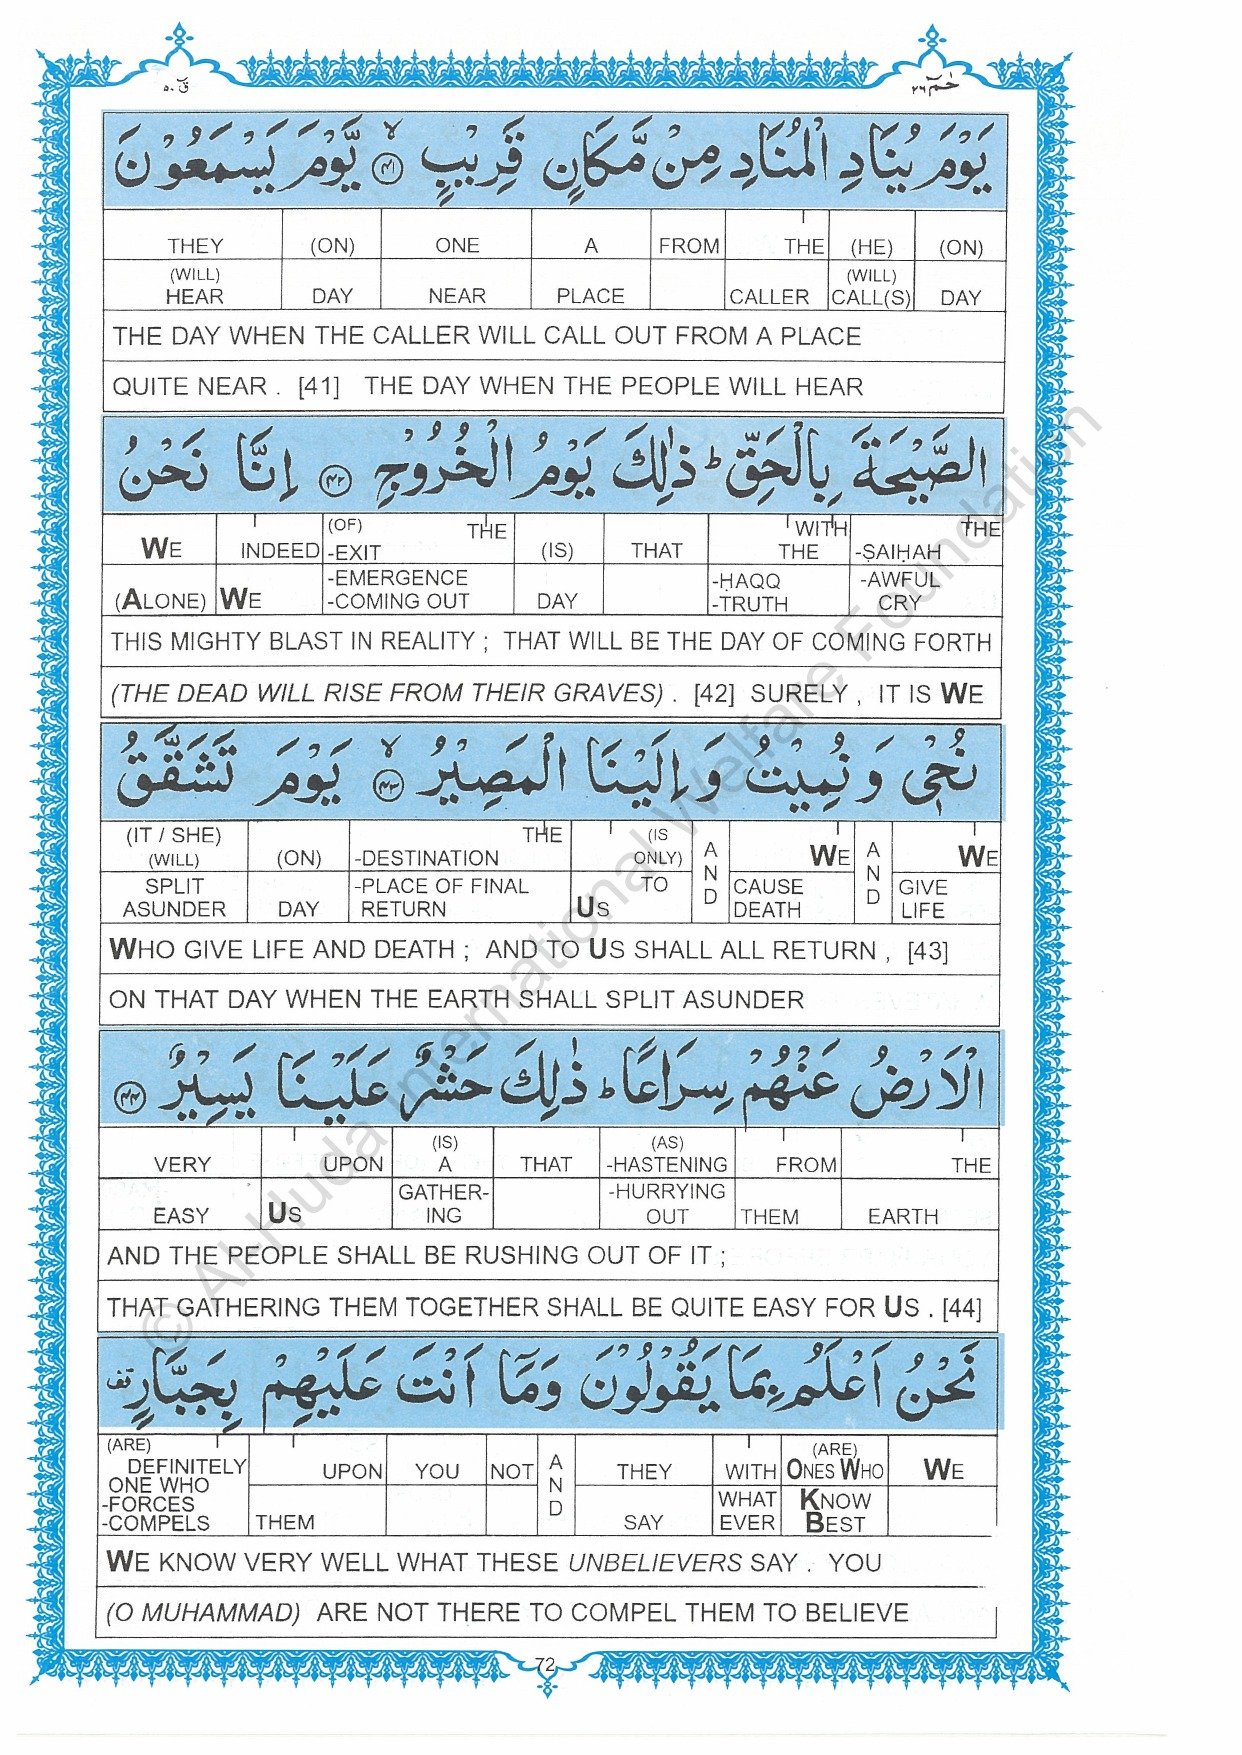 قٓ ٥٠
حٰمٓ ٢٦
يَوْمَ يُنَادِ الْمُنَادِ مِنْ مَّكَانٍ قَرِيْبٍ ۙ ﴿٤١﴾ يَّوْمَ يَسْمَعُوْنَ
THEY (ON) ONE A FROM THE (HE) (ON)
(WILL) HEAR DAY NEAR PLACE CALLER (WILL) CALL(S) DAY
THE DAY WHEN THE CALLER WILL CALL OUT FROM A PLACE
QUITE NEAR . [41] THE DAY WHEN THE PEOPLE WILL HEAR
الصَّيْحَةَ بِالْحَقِّ ؕ ذٰلِكَ يَوْمُ الْخُرُوْجِ ﴿٤٢﴾ اِنَّا نَحْنُ
WE INDEED (OF) THE -EXIT (IS) THAT WITH THE THE -ṢAIḤAH
(ALONE) WE -EMERGENCE -COMING OUT DAY -ḤAQQ -TRUTH -AWFUL CRY
THIS MIGHTY BLAST IN REALITY ; THAT WILL BE THE DAY OF COMING FORTH
(THE DEAD WILL RISE FROM THEIR GRAVES) . [42] SURELY , IT IS WE
نُحْيٖ وَ نُمِيْتُ وَ اِلَيْنَا الْمَصِيْرُ ۙ ﴿٤٣﴾ يَوْمَ تَشَقَّقُ
(IT / SHE) (WILL) (ON) THE -DESTINATION (IS ONLY) AND WE AND WE
SPLIT ASUNDER DAY -PLACE OF FINAL RETURN US TO CAUSE DEATH GIVE LIFE
WHO GIVE LIFE AND DEATH ; AND TO US SHALL ALL RETURN , [43]
ON THAT DAY WHEN THE EARTH SHALL SPLIT ASUNDER
الْاَرْضُ عَنْهُمْ سِرَاعًا ؕ ذٰلِكَ حَشْرٌ عَلَيْنَا يَسِيْرٌ ﴿٤٤﴾
VERY UPON (IS) A THAT (AS) -HASTENING FROM THE
EASY US GATHER-ING -HURRYING OUT THEM EARTH
AND THE PEOPLE SHALL BE RUSHING OUT OF IT ;
THAT GATHERING THEM TOGETHER SHALL BE QUITE EASY FOR US . [44]
نَحْنُ اَعْلَمُ بِمَا يَقُوْلُوْنَ وَ مَاۤ اَنْتَ عَلَيْهِمْ بِجَبَّارٍ قف
(ARE) DEFINITELY UPON YOU NOT AND THEY WITH (ARE) ONES WHO WE
ONE WHO -FORCES -COMPELS THEM SAY WHAT EVER KNOW BEST
WE KNOW VERY WELL WHAT THESE UNBELIEVERS SAY . YOU
(O MUHAMMAD) ARE NOT THERE TO COMPEL THEM TO BELIEVE
72
© Al-Huda International Welfare Foundation